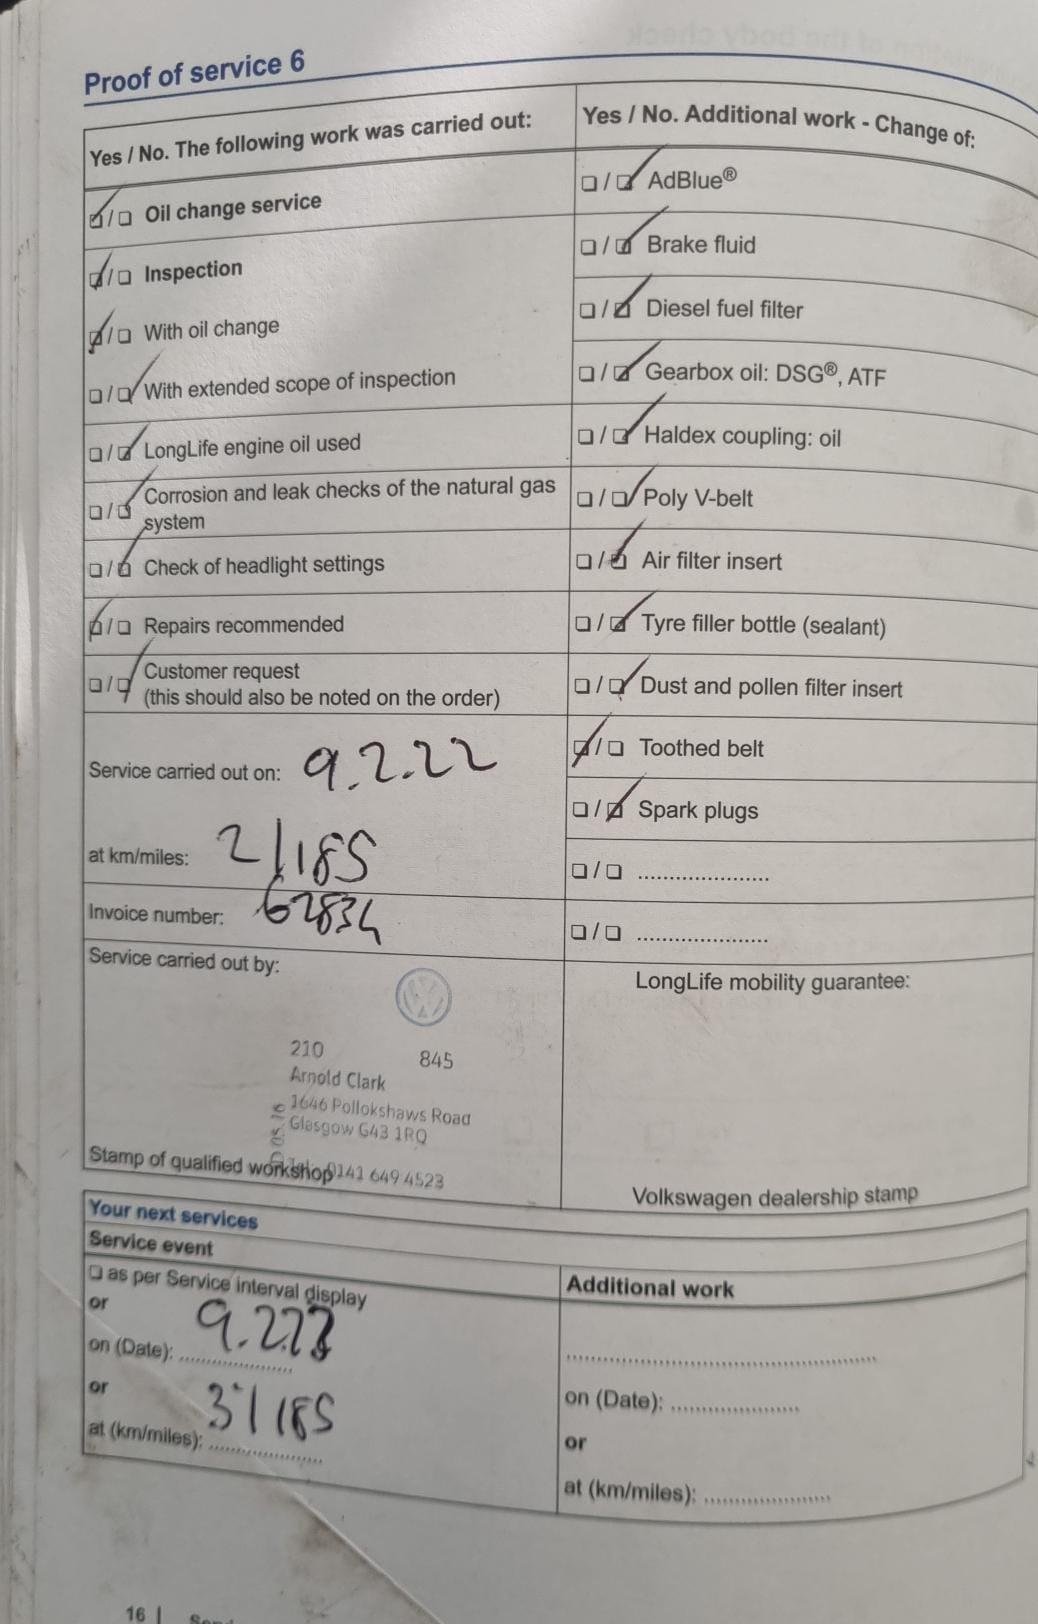 Proof of service 6
Yes / No. The following work was carried out:
❏/❏ Oil change service
❏/❏ Inspection
❏/❏ With oil change
❏/❏ With extended scope of inspection
❏/❏ LongLife engine oil used
❏/❏ Corrosion and leak checks of the natural gas
system
❏/❏ Check of headlight settings
❏/❏ Repairs recommended
❏/❏ Customer request
(this should also be noted on the order)
Service carried out on: 9.2.22
at km/miles: 21185
Invoice number: 62834
Service carried out by:
210 845
Arnold Clark
1646 Pollokshaws Road
Glasgow G43 1RQ
0141 649 4523
Stamp of qualified workshop
Yes / No. Additional work - Change of:
❏/❏ AdBlue®
❏/❏ Brake fluid
❏/❏ Diesel fuel filter
❏/❏ Gearbox oil: DSG®, ATF
❏/❏ Haldex coupling: oil
❏/❏ Poly V-belt
❏/❏ Air filter insert
❏/❏ Tyre filler bottle (sealant)
❏/❏ Dust and pollen filter insert
❏/❏ Toothed belt
❏/❏ Spark plugs
❏/❏ ......................
❏/❏ ......................
LongLife mobility guarantee:
Volkswagen dealership stamp
Your next services
Service event
❏ as per Service interval display
or
on (Date): 9.2.23
or
at (km/miles): 31185
Additional work
..................................................
on (Date): .....................
or
at (km/miles): .....................
16 |